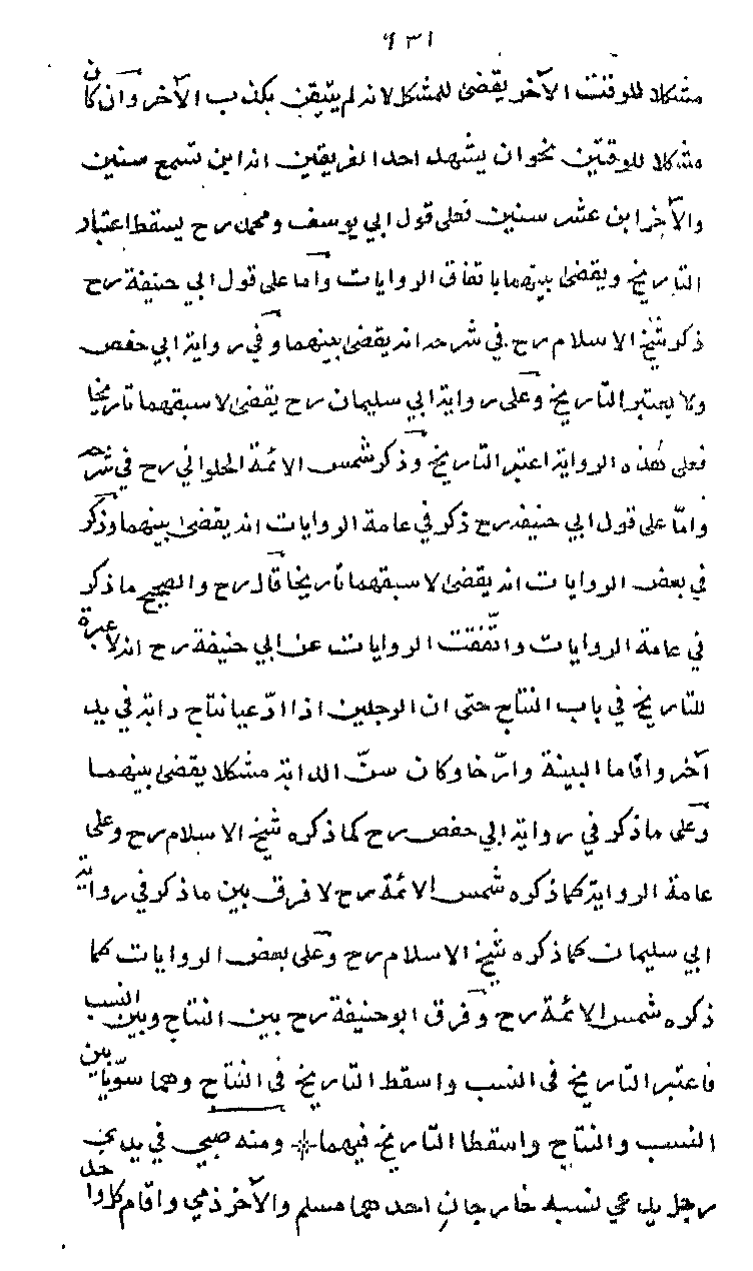 ٩٣١
مشكلا للوقت الآخر يقضى للمشكل لانه لم يتيقن بكذب الآخر وان كان
مشكلا للوقتين نحو ان يشهد احد الفريقين انه ابن تسع سنين
والآخر ابن عشر سنين فعلى قول ابي يوسف ومحمد رح يسقط اعتبار
التاريخ ويقضى بينهما باتفاق الروايات واما على قول ابي حنيفة رح
ذكر شيخ الاسلام رح في شرحه انه يقضى بينهما وفي رواية ابي حفص
ولا يعتبر التاريخ وعلى رواية ابي سليمان رح يقضى لاسبقهما تاريخا
فعلى هذه الرواية اعتبر التاريخ وذكر شمس الائمة الحلواني رح في شرحه
واما على قول ابي حنيفة رح ذكر في عامة الروايات انه يقضى بينهما وذكر
في بعض الروايات انه يقضى لاسبقهما تاريخا قال رح والصحيح ما ذكر
في عامة الروايات واتّفقت الروايات عن ابي حنيفة رح انه لا عبرة
للتاريخ في باب النتاج حتى ان الرجلين اذا ادّعيا نتاج دابة في يد
آخر واقاما البينة وارّخا وكان سنّ الدابة مشكلا يقضى بينهما
وعلى ما ذكر في رواية ابي حفص رح كما ذكره شيخ الاسلام رح وعلى
عامة الرواية كما ذكره شمس الائمة رح لا فرق بين ما ذكر في رواية
ابي سليمان كما ذكره شيخ الاسلام رح وعلى بعض الروايات كما
ذكره شمس الائمة رح وفرق ابو حنيفة رح بين النتاج وبين النسب
فاعتبر التاريخ في النسب واسقط التاريخ في النتاج وهما سوّيا بين
النسب والنتاج واسقطا التاريخ فيهما * ومنه صبي في يدي
رجل يدعي نسبه خارجان احدهما مسلم والآخر ذمي واقام كل واحد